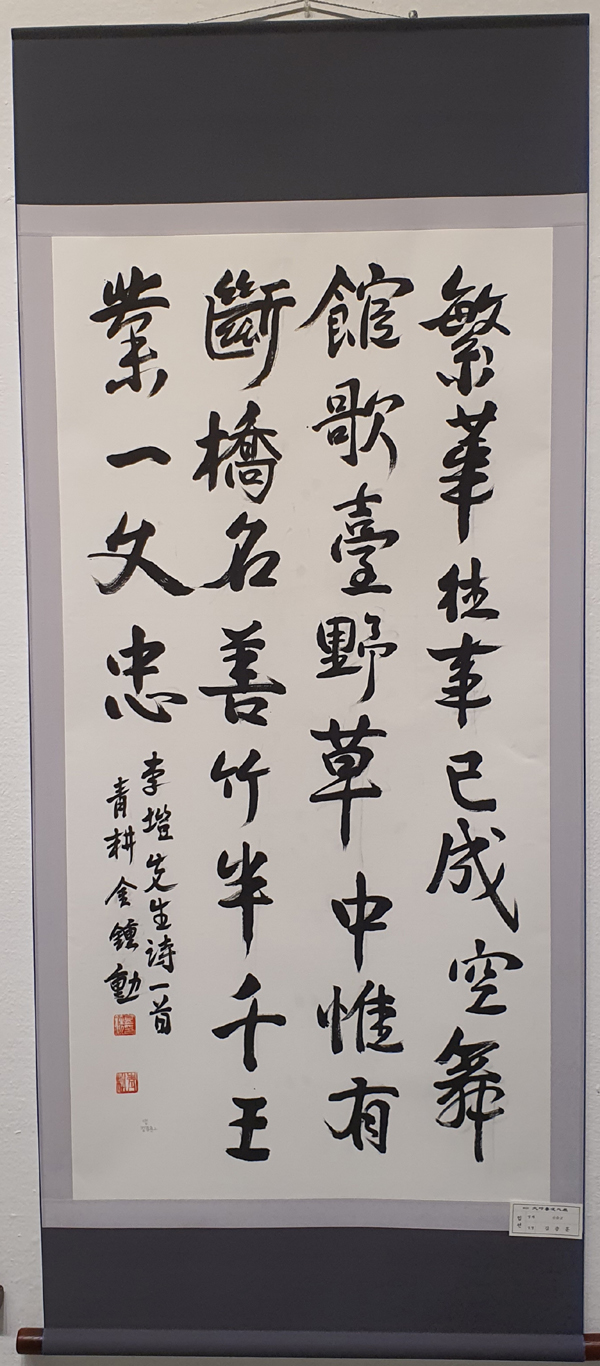 繁華往事已成空舞
館歌臺野草中惟有
斷橋名善竹半千王
業一文忠
李塏先生詩一首
青耕金鍾勳